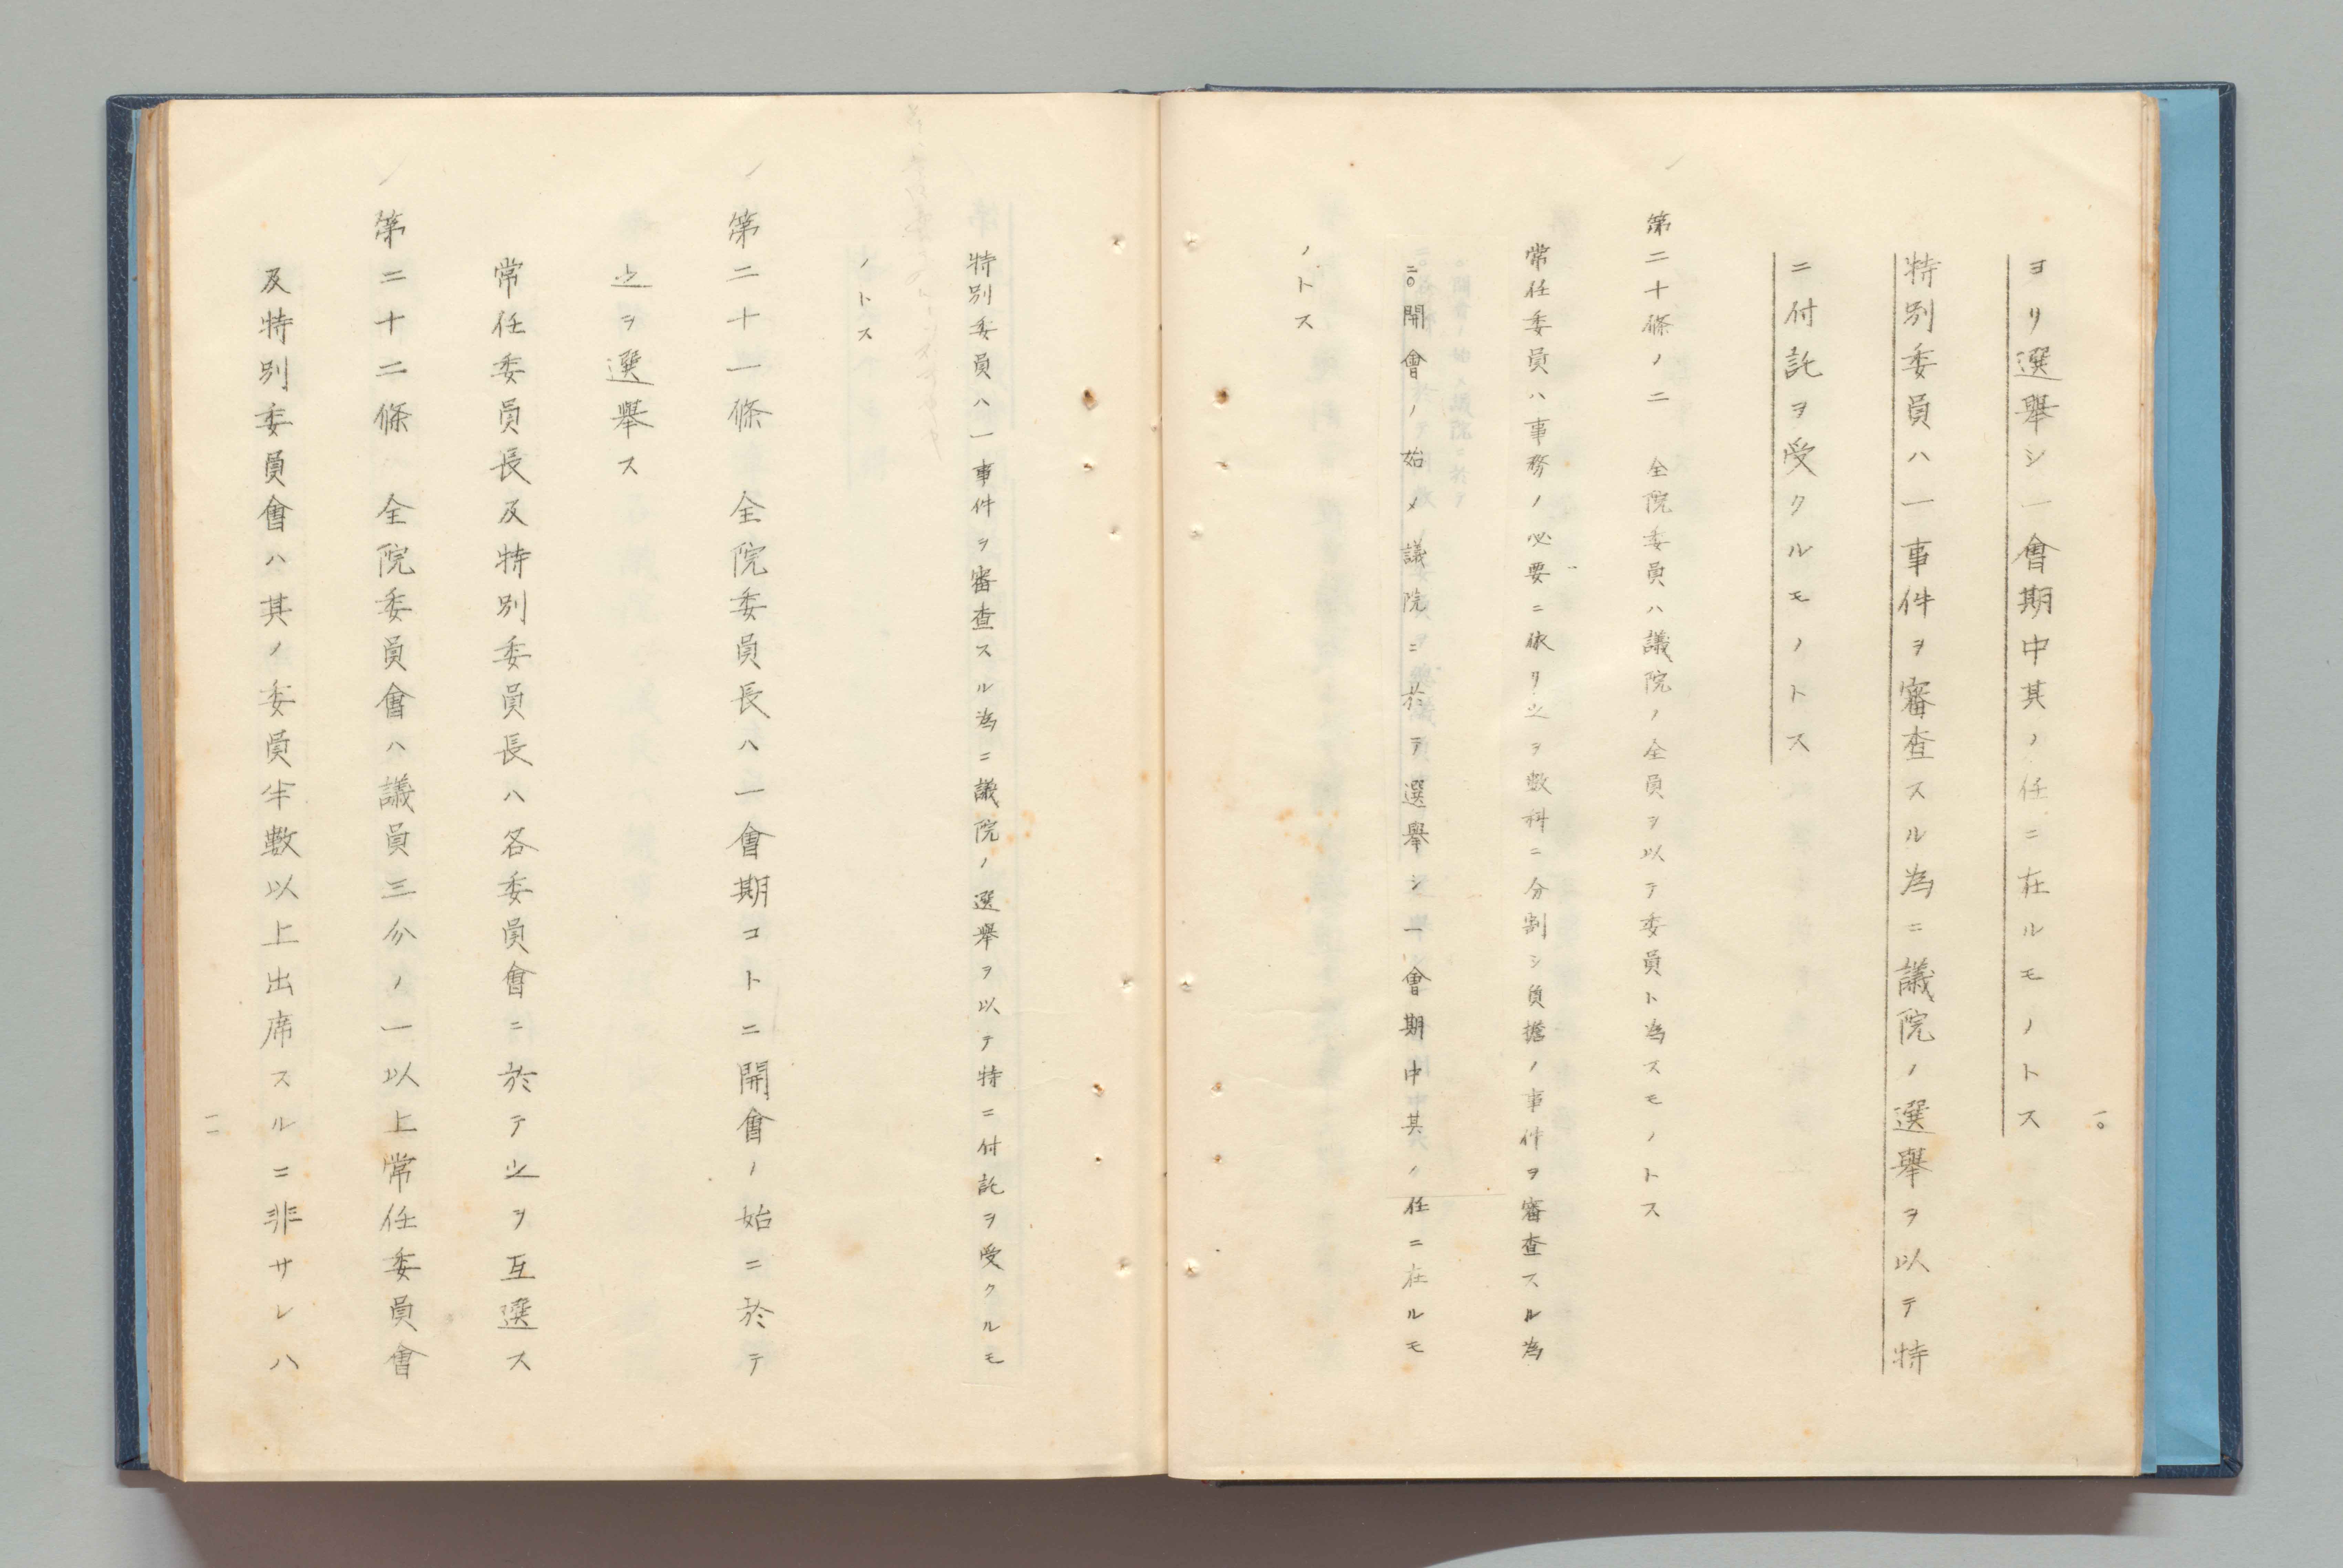 一〇
ヨリ選擧シ一會期中其ノ任ニ在ルモノトス
特別委員ハ一事件ヲ審査スル為ニ議院ノ選擧ヲ以テ特
ニ付託ヲ受クルモノトス
第二十條ノ二　全院委員ハ議院ノ全員ヲ以テ委員ト為スモノトス
常任委員ハ事務ノ必要ニ依リ之ヲ數科ニ分割シ負擔ノ事件ヲ審査スル為
ニ〇開會ノ始メ議院ニ於テ選擧シ一會期中其ノ任ニ在ルモ
ノトス
特別委員ハ一事件ヲ審査スル為ニ議院ノ選擧ヲ以テ特ニ付託ヲ受クルモ
ノトス
第二十一條　全院委員長ハ一會期コトニ開會ノ始ニ於テ
之ヲ選擧ス
常任委員長及特別委員長ハ各委員會ニ於テ之ヲ互選ス
第二十二條　全院委員會ハ議員三分ノ一以上常任委員會
及特別委員會ハ其ノ委員半數以上出席スルニ非サレハ
一一